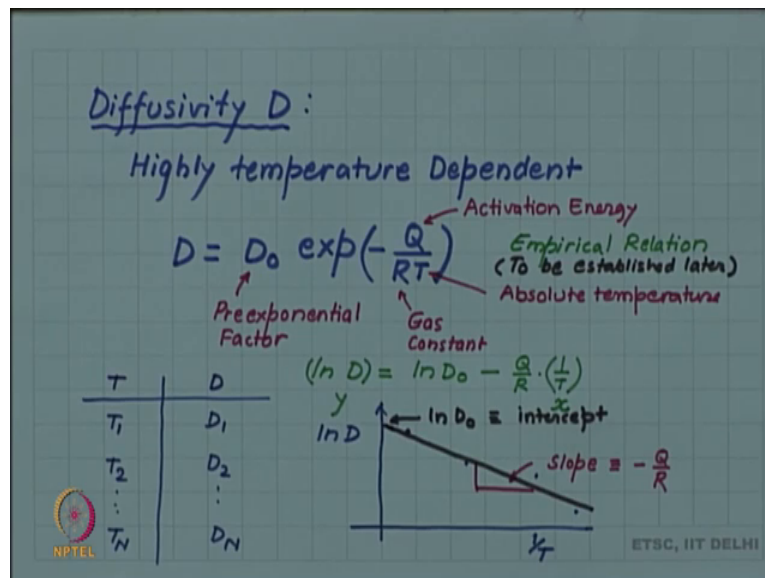 Diffusivity D :
Highly temperature Dependent
Activation Energy
D = D₀ exp(-Q/RT)
Empirical Relation
(To be established later)
Absolute temperature
Preexponential
Factor
Gas
Constant
T | D
T₁ | D₁
T₂ | D₂
⋮ | ⋮
T_N | D_N
(ln D) = ln D₀ - Q/R · (1/T)
y x
ln D₀ ≡ intercept
ln D
slope ≡ -Q/R
1/T
NPTEL
ETSC, IIT DELHI